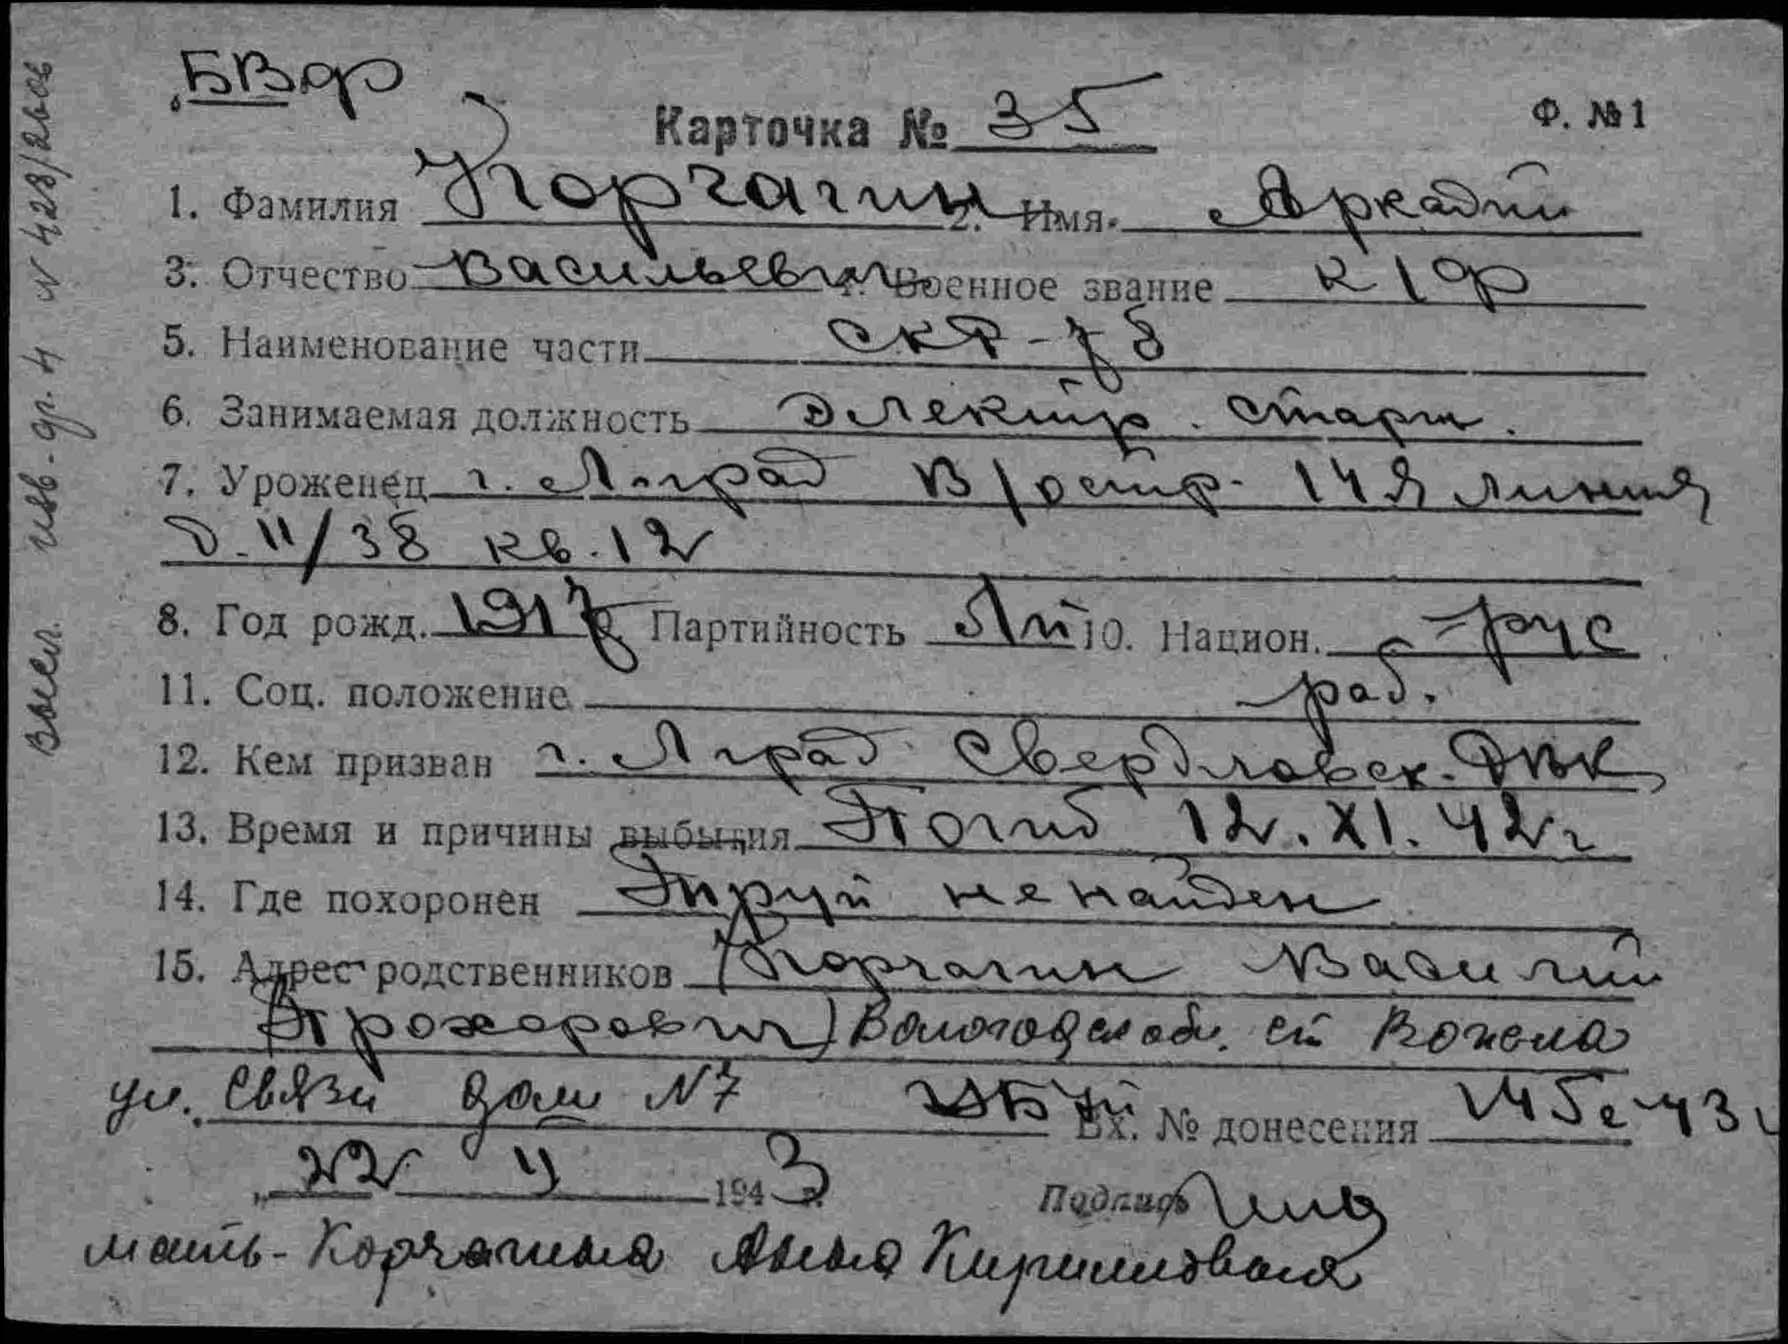 БВФ
Карточка № 35
Ф. №1
1. Фамилия Корчагин 2. Имя Аркадий
3. Отчество Васильевич 4. Военное звание к/ф
5. Наименование части СКР-78
6. Занимаемая должность Электр. старш.
7. Уроженец г. Л-град В/остр. 14я линия
д. 11/38 кв. 12
8. Год рожд. 1917 Партийность 10. Национ. рус
11. Соц. положение раб.
12. Кем призван г. Лград Свердловск. РВК
13. Время и причины выбытия Погиб 12.XI.42г
14. Где похоронен Труп не найден
15. Адрес родственников (Корчагин Василий
Прохорович) Вологодск обл. ст Вожега
ул. Связи дом №7 Вх. № донесения 145с-43г
„22 1943
Подпись
мать - Корчагина Анна Кирилловна